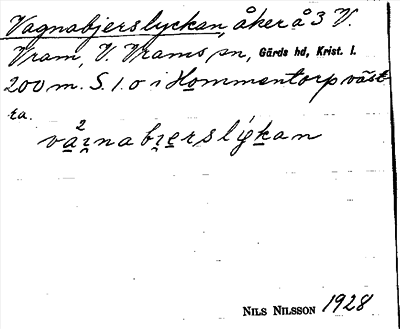 Vagnabjerslyckan, åker å 3 V.
Vram, V. Vrams sn, Gärds hd, Krist. l.
200 m. S. l. o i Hommentorp väst-
ra.
va²i̯nabi̯erslýkan
NILS NILSSON 1928